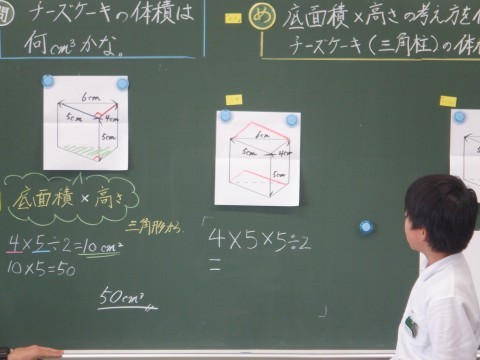 問
チーズケーキの体積は
何cm³かな。
め
底面積×高さの考え方を
チーズケーキ(三角柱)の体
6cm
5cm
4cm
5cm
6cm
5cm
4cm
5cm
5cm
底面積×高さ
三角形から
4×5÷2=10cm²
10×5=50
50cm³
4×5×5÷2
=